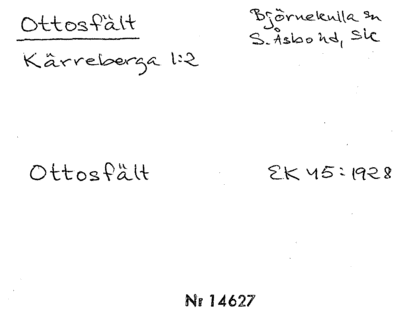 Ottosfält
Björnekulla sn
Kärreberga 1:2
S. Åsbo hd, Sk
Ottosfält
EK 45:1928
Nr 14627